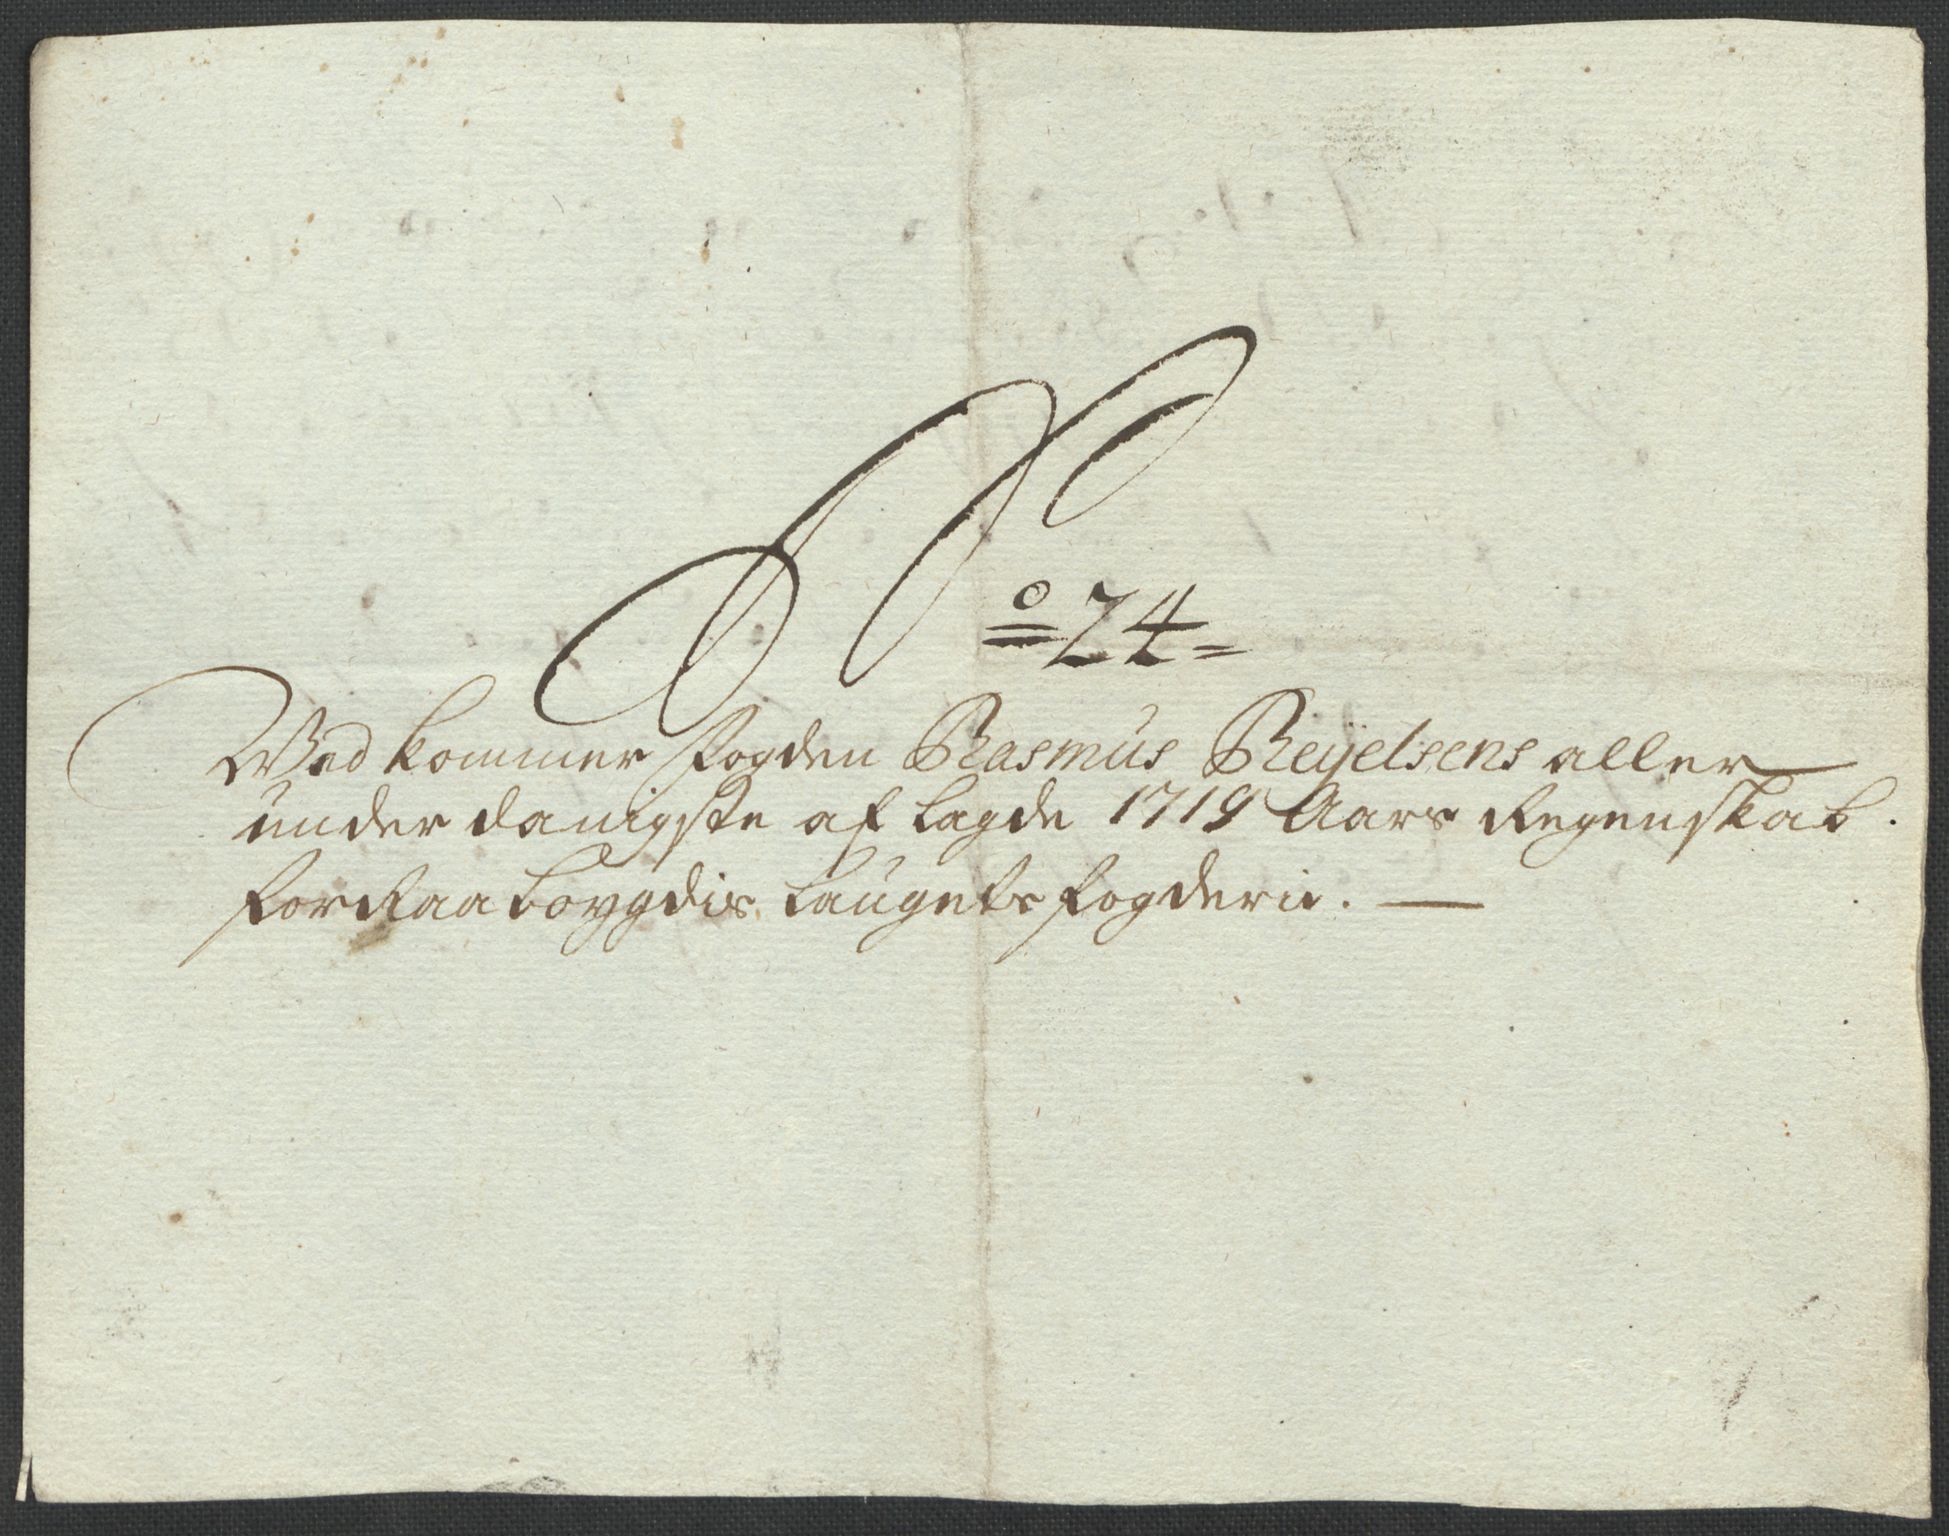 No 24
Ved kommer fogden Rasmus Reyelsens aller
underdanigste aflagde 1719 Aars Regenskab.
for Raabøygdis laugets fogderie.